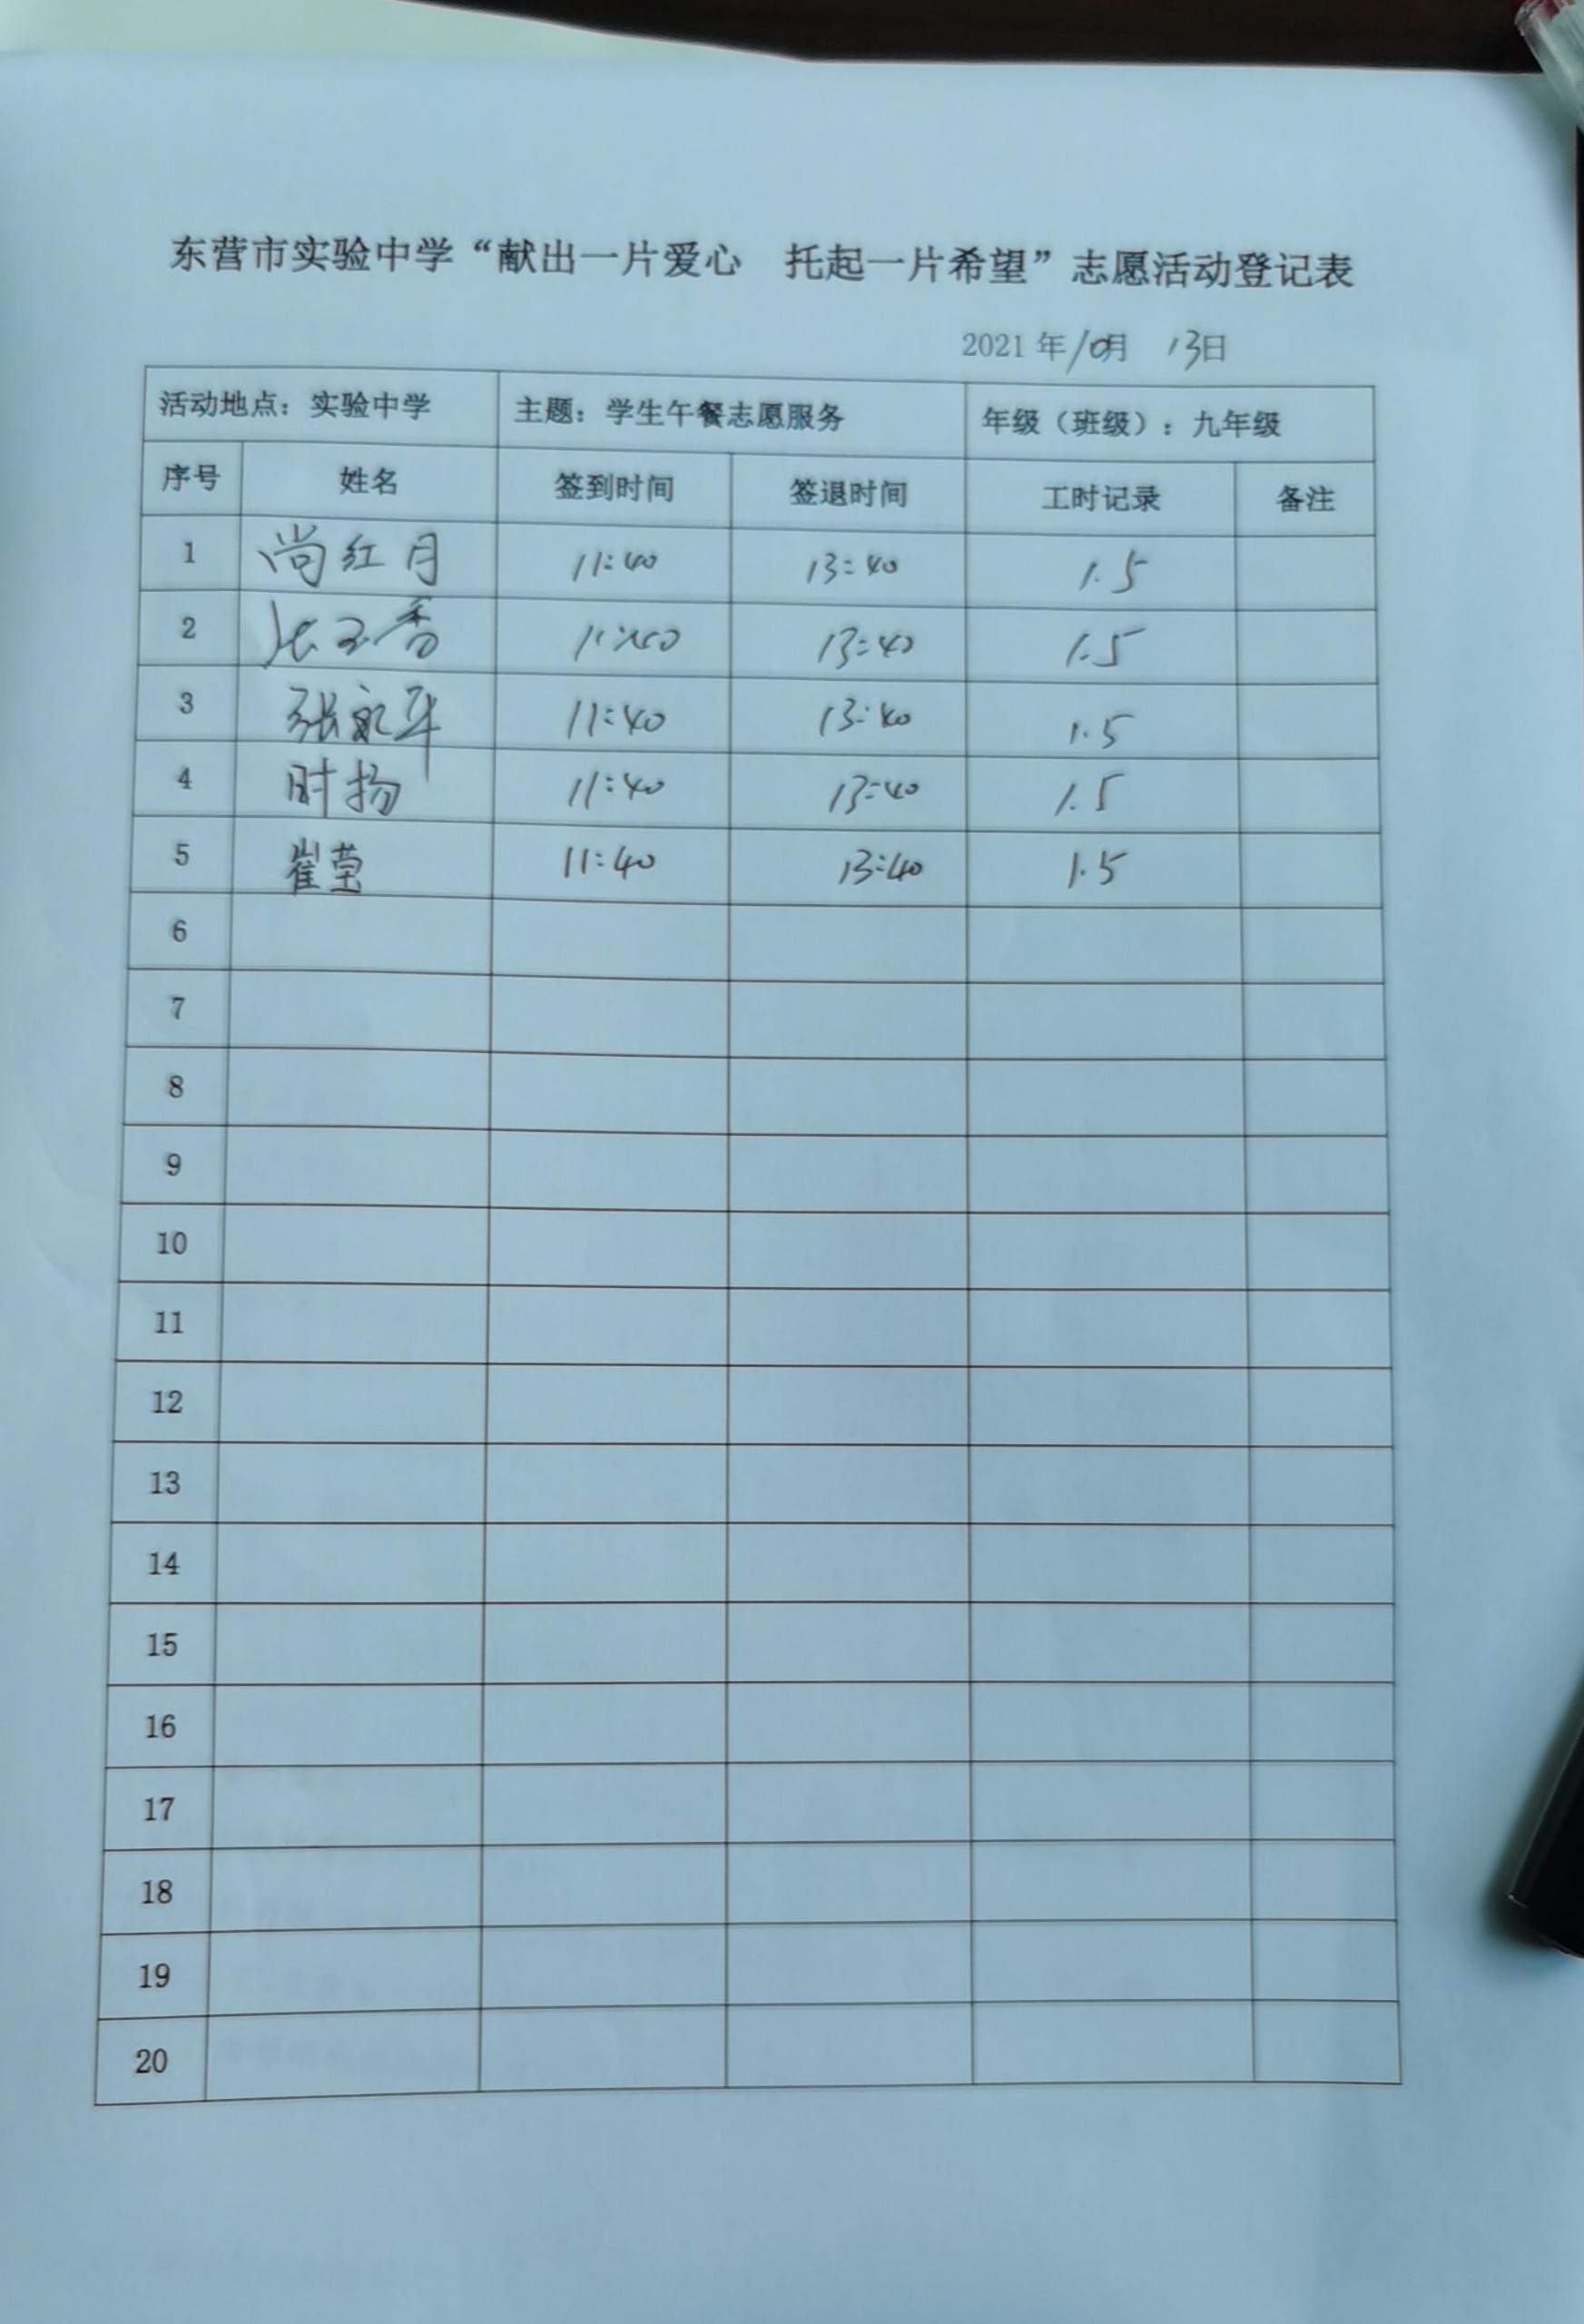 东营市实验中学“献出一片爱心　托起一片希望”志愿活动登记表
2021年10月 13日
活动地点：实验中学 主题：学生午餐志愿服务 年级（班级）：九年级
序号 姓名 签到时间 签退时间 工时记录 备注
1 尚红月 11:40 13:40 1.5
2 13:40 1.5
3 张永军 11:40 13:40 1.5
4 时扬 11:40 13:40 1.5
5 崔莹 11:40 13:40 1.5
6
7
8
9
10
11
12
13
14
15
16
17
18
19
20